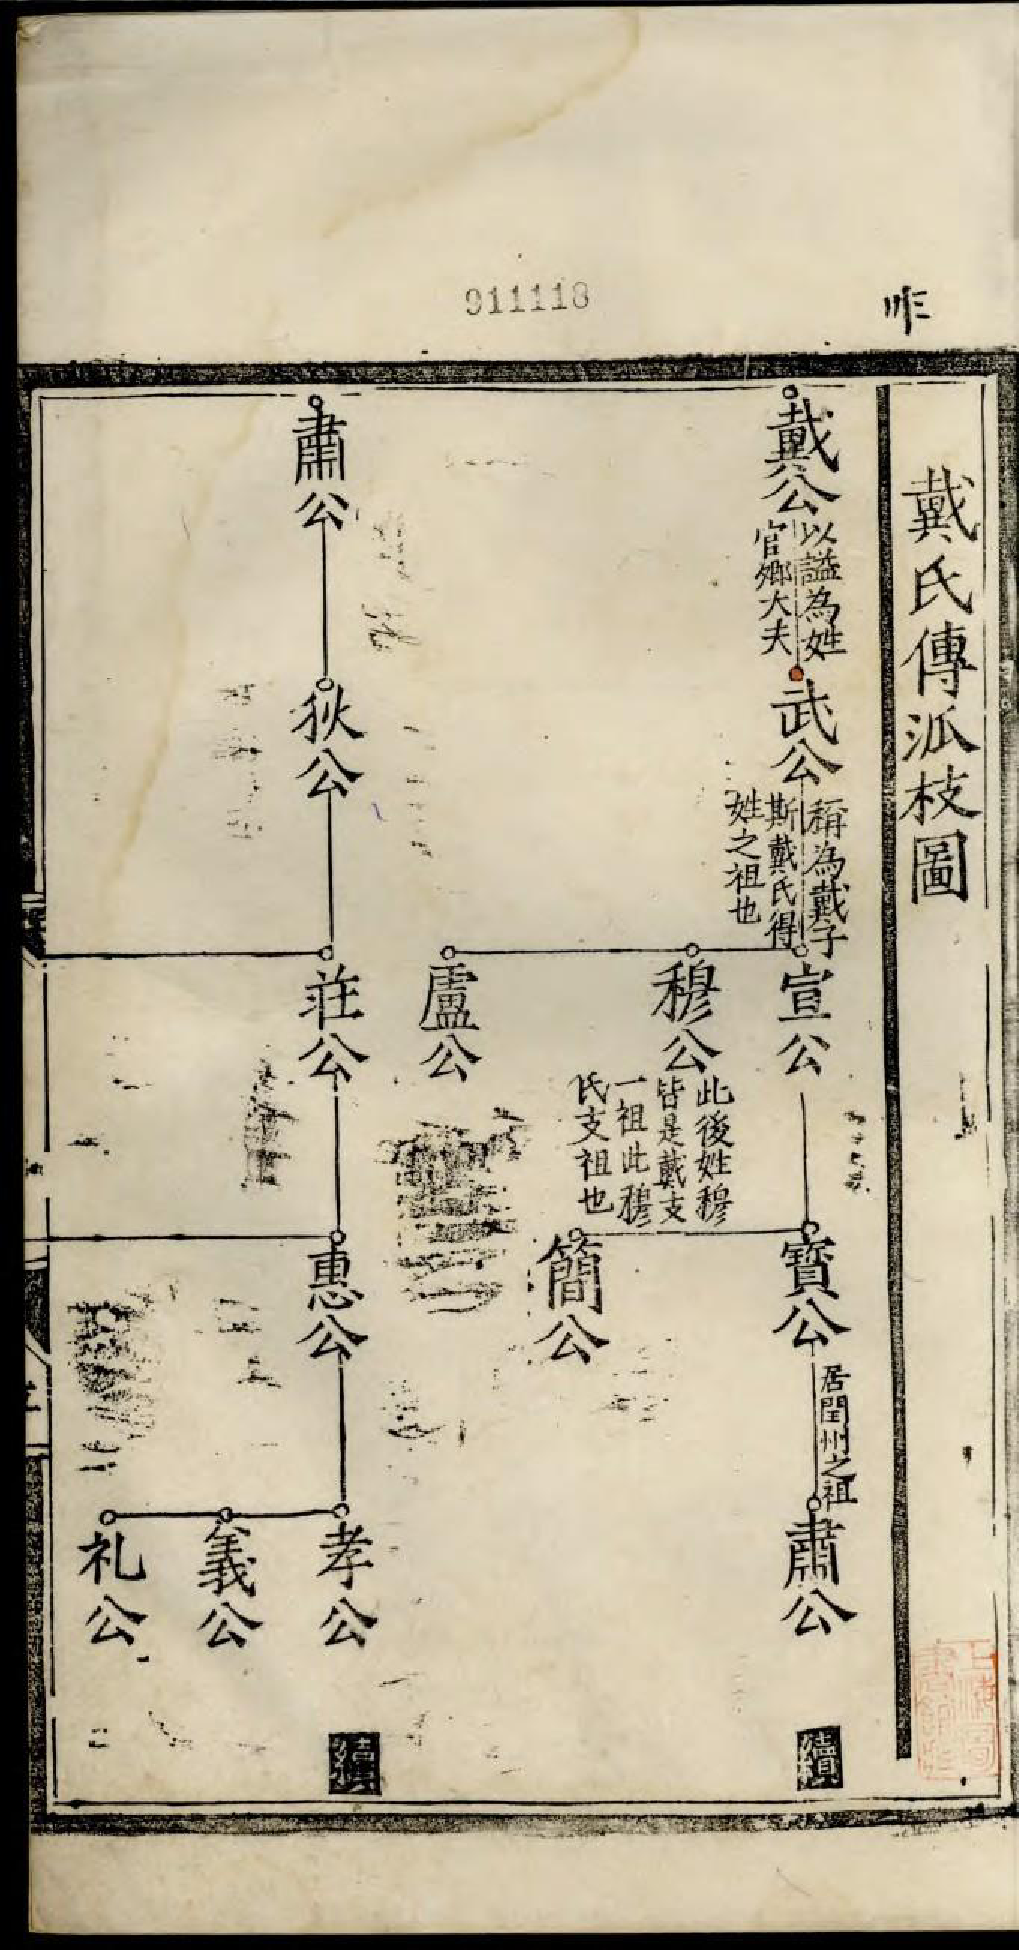 911118
戴氏傳派枝圖
戴公
以謚為姓
官鄉大夫
武公
稱為戴子
斯戴氏得
姓之祖也
宣公
穆公
此後姓穆
皆是戴支
一祖此穆
氏支祖也
盧公
寶公
居閏州之祖
簡公
肅公
續
肅公
狄公
莊公
惠公
孝公
義公
礼公
續
上海圖
書館藏